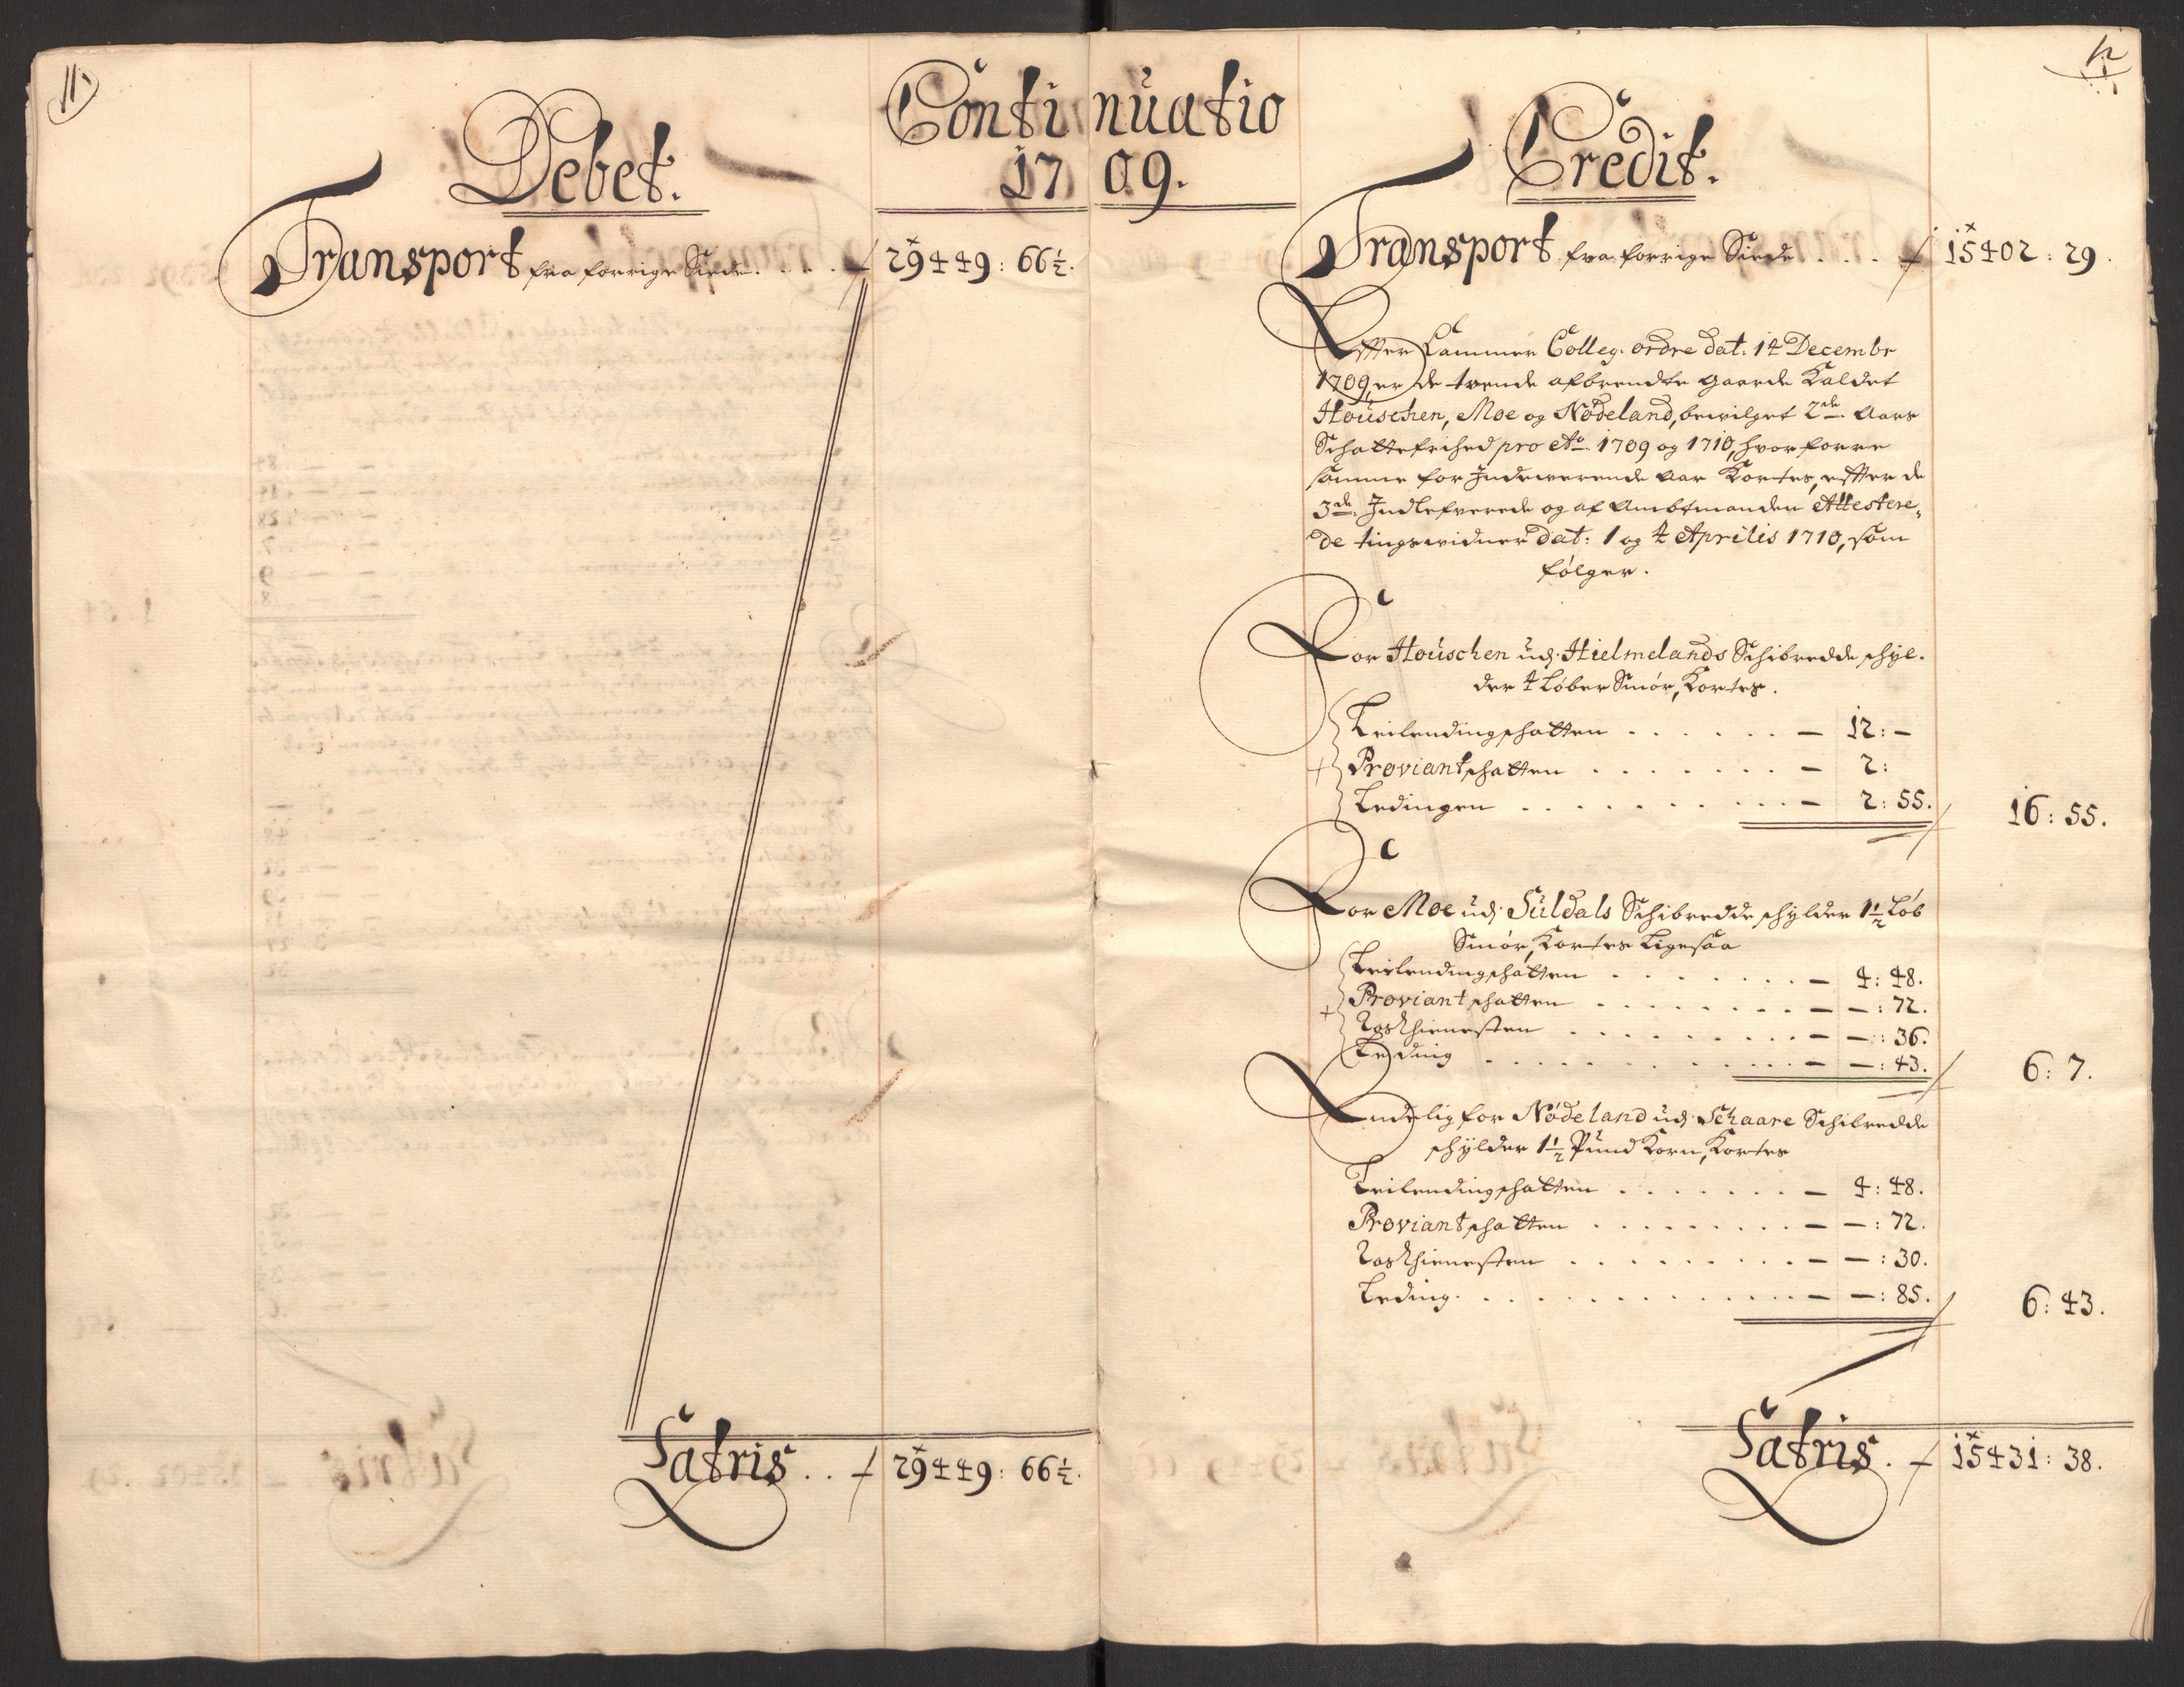 11.
Debet.
Continuatio
1709.
Transport fra forrige Siede . . . . 29449: 66½.
Latris . . 29449: 66½.
12
Credit.
Transport fra forrige Siede . . . . 15402: 29.
Effter Cammer Colleg. ordre dat: 14 Decembr
1709, er de tvende afbrendte gaarde Kaldet
Houschen, Moe og Nødeland, bevilget 2de Aars
Schattefrihed pro Ao 1709 og 1710, hvorforre
samme for Indeværende Aar Kortes, effter de
3de Indlefverede og af Ambtmanden Attestere„
de tingsvidner dat: 1 og 4 Aprilis 1710, som
følger.
For Houschen udj Hielmelands Schibredde schyl-
der 4 Løber Smør, Kortes.
Leilendingschatten . . . . . . — 12: —
Proviantschatten . . . . . . . — 2:
Ledingen . . . . . . . . . . — 2: 55.
16: 55.
For Moe udj Suldals Schibredde schylder 1½ Løb
Smør, Kortes Ligesaa
Leilendingschatten . . . . . . . — 4: 48.
Proviantschatten . . . . . . . . — —: 72.
Rosthienesten . . . . . . . . . — —: 36.
Leding . . . . . . . . . . . . — —: 43.
6: 7.
Endelig for Nødeland udj Schaare Schibredde
schylder 1½ Pund Korn, Kortes
Leilendingschatten . . . . . . . — 4: 48.
Proviantschatten . . . . . . . . — —: 72.
Rosthienesten . . . . . . . . . — —: 30.
Leding . . . . . . . . . . . . — —: 85.
6: 43.
Latris . 15431: 38.